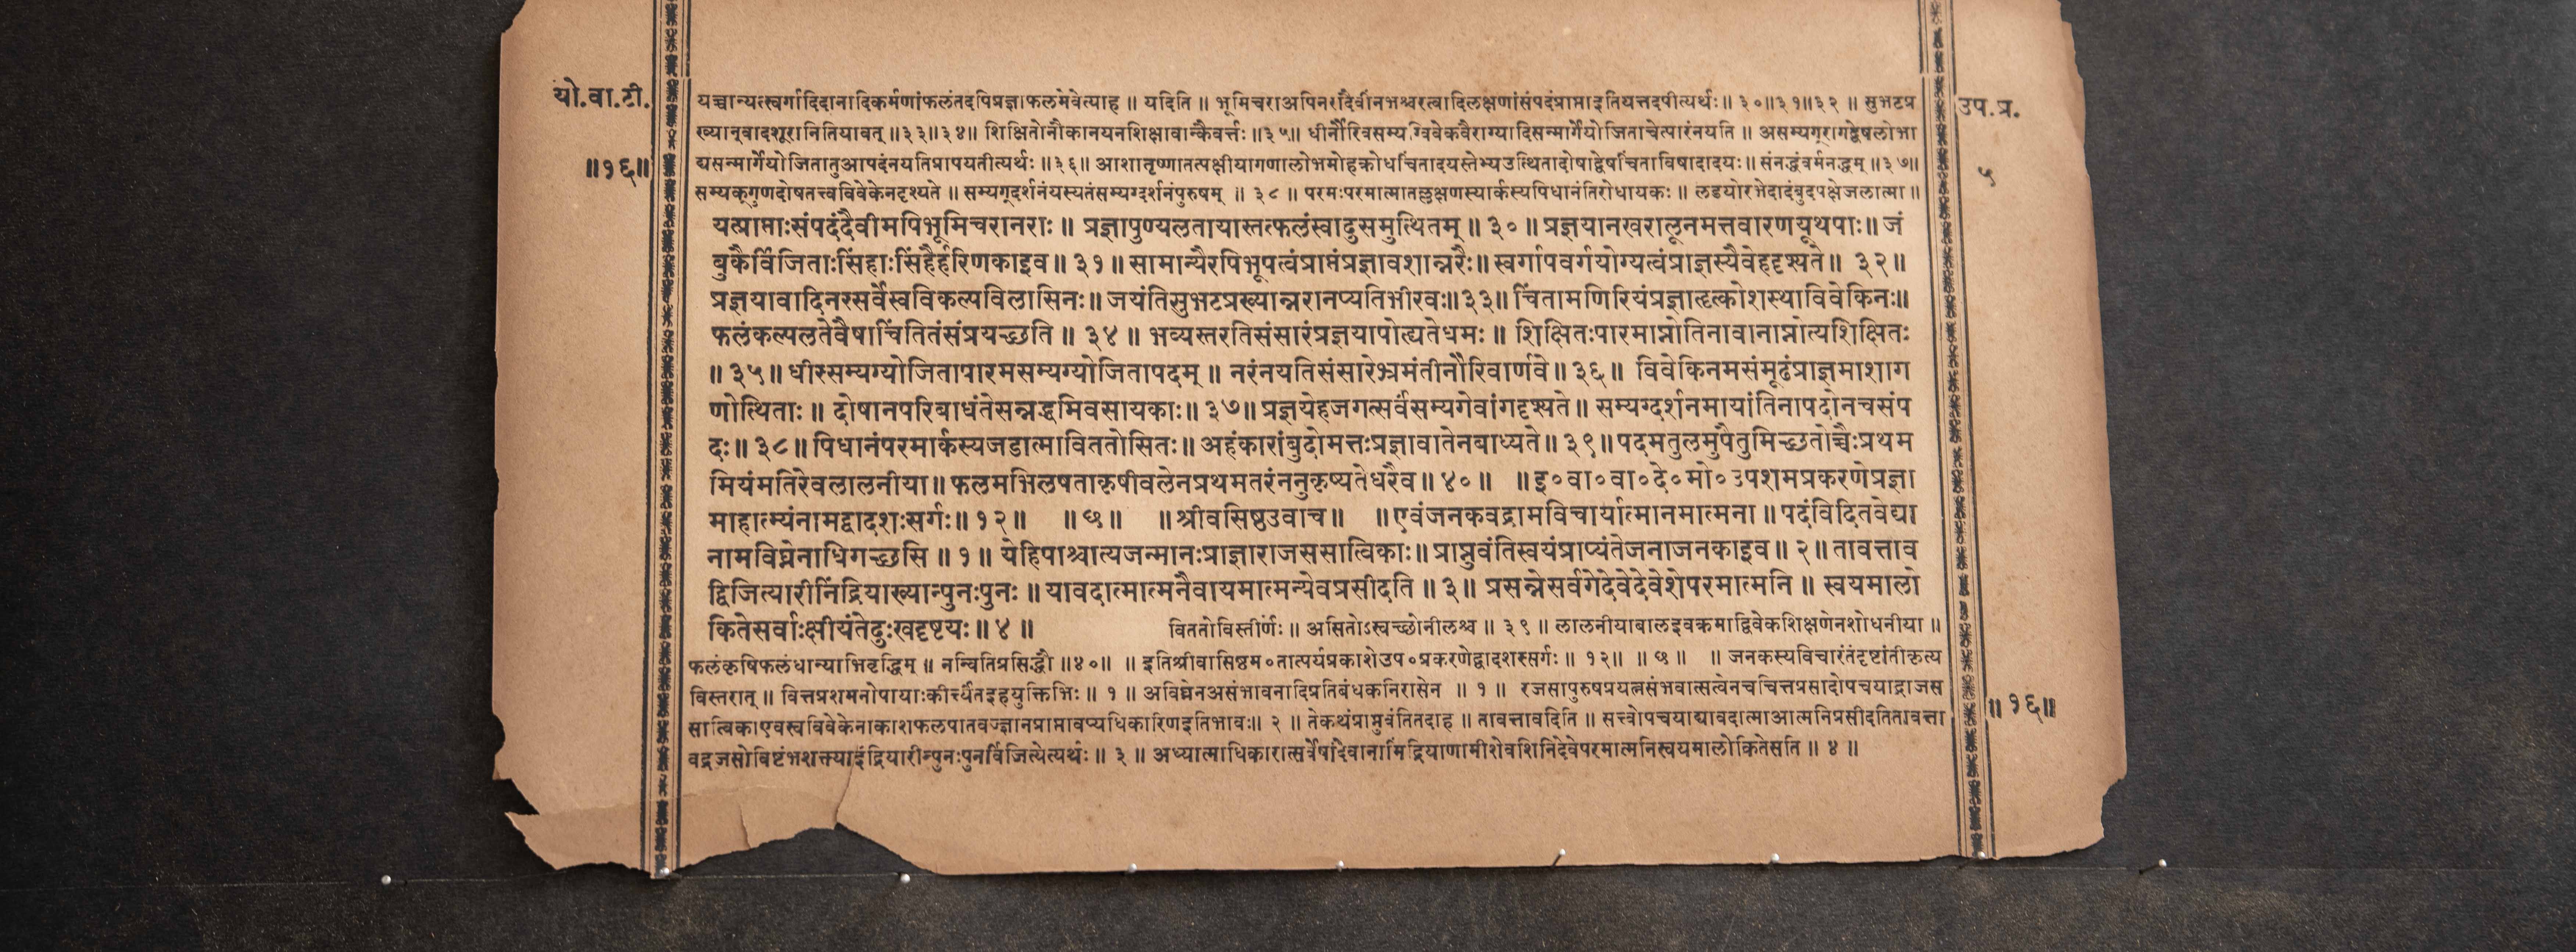 यो.वा.टी.
॥१६॥
यच्चान्यत्स्वर्गादिदानादिकर्मणांफलंतदपिप्रज्ञाफलमेवेत्याह ॥ यदिति ॥ भूमिचराअपिनरादैवींनभश्चरत्वादिलक्षणांसंपदंप्राप्ताइतियत्तदपीत्यर्थः ॥ ३०॥३१॥३२ ॥ सुभटप्र
ख्यान्वादशूरानितियावत् ॥३३॥३४॥ शिक्षितोनौकानयनशिक्षावान्कैवर्त्तः ॥३५॥ धीर्नौरिवसम्यग्विवेकवैराग्यादिसन्मार्गेयोजिताचेत्पारंनयति ॥ असम्यग्रागद्वेषलोभा
द्यसन्मार्गेयोजितातुआपदंनयतिप्रापयतीत्यर्थः ॥३६॥ आशातृष्णातत्पक्षीयागणालोभमोहक्रोधचिंतादयस्तेभ्यउत्थितादोषाद्वेषचिंताविषादादयः ॥ संनद्धंवर्मनद्धम् ॥३७॥
सम्यक्गुणदोषतत्त्वविवेकेनदृश्यते ॥ सम्यग्दर्शनंयस्यतंसम्यग्दर्शनंपुरुषम् ॥ ३८ ॥ परमःपरमात्मातल्लक्षणस्यार्कस्यपिधानंतिरोधायकः ॥ लडयोरभेदादंबुदपक्षेजलात्मा ॥
यत्प्राप्ताःसंपदंदैवीमपिभूमिचरानराः ॥ प्रज्ञापुण्यलतायास्तत्फलंस्वादुसमुत्थितम् ॥ ३० ॥ प्रज्ञयानखरालूनमत्तवारणयूथपाः ॥ जं
बुकैर्विजिताःसिंहाःसिंहैर्हरिणकाइव ॥ ३१ ॥ सामान्यैरपिभूपत्वंप्राप्तंप्रज्ञावशान्नरैः ॥ स्वर्गापवर्गयोग्यत्वंप्राज्ञस्यैवेहदृश्यते ॥ ३२ ॥
प्रज्ञयावादिनःसर्वेस्वविकल्पविलासिनः ॥ जयंतिसुभटप्रख्यान्नरानप्यतिभीरवः ॥ ३३ ॥ चिंतामणिरियंप्रज्ञाहृत्कोशस्थाविवेकिनः ॥
फलंकल्पलतेवैषाचिंतितंसंप्रयच्छति ॥ ३४ ॥ भव्यस्तरतिसंसारंप्रज्ञयापोह्यतेधमः ॥ शिक्षितःपारमाप्नोतिनावानाप्नोत्यशिक्षितः
॥ ३५ ॥ धीःसम्यग्योजितापारमसम्यग्योजितापदम् ॥ नरंनयतिसंसारेभ्रमंतीनौरिवार्णवे ॥ ३६ ॥ विवेकिनमसंमूढंप्राज्ञमाशाग
णोत्थिताः ॥ दोषानपरिबाधंतेसन्नद्धमिवसायकाः ॥ ३७ ॥ प्रज्ञयेहजगत्सर्वंसम्यगेवांगदृश्यते ॥ सम्यग्दर्शनमायांतिनापदोनचसंप
दः ॥ ३८ ॥ पिधानंपरमार्कस्यजडात्माविततोसितः ॥ अहंकारांबुदोमत्तःप्रज्ञावातेनबाध्यते ॥ ३९ ॥ पदमतुलमुपैतुमिच्छतोच्चैःप्रथम
मियंमतिरेवलालनीया ॥ फलमभिलषताकृषीवलेनप्रथमतरंननुकृष्यतेधरैव ॥ ४० ॥ ॥ इ०वा०वा०दे०मो०उपशमप्रकरणेप्रज्ञा
माहात्म्यंनामद्वादशःसर्गः ॥ १२ ॥ ॥ छ ॥ ॥ श्रीवसिष्ठउवाच ॥ ॥ एवंजनकवद्रामविचार्यात्मानमात्मना ॥ पदंविदितवेद्या
नामविघ्नेनाधिगच्छसि ॥ १ ॥ येहिपाश्चात्यजन्मानःप्राज्ञाराजससात्विकाः ॥ प्राप्नुवंतिस्वयंप्राप्यंतेजनाजनकाइव ॥ २ ॥ तावत्ताव
द्विजित्यारीनिंद्रियाख्यान्पुनःपुनः ॥ यावदात्मात्मनैवायमात्मन्येवप्रसीदति ॥ ३ ॥ प्रसन्नेसर्वगेदेवेदेवेशेपरमात्मनि ॥ स्वयमालो
कितेसर्वाःक्षीयंतेदुःखदृष्टयः ॥ ४ ॥ विततोविस्तीर्णः ॥ असितोऽस्वच्छोनीलश्च ॥ ३९ ॥ लालनीयाबालइवक्रमाद्विवेकशिक्षणेनशोधनीया ॥
फलंकृषिफलंधान्याभिवृद्धिम् ॥ नन्वितिप्रसिद्धौ ॥४०॥ ॥ इतिश्रीवासिष्ठम०तात्पर्यप्रकाशेउप०प्रकरणेद्वादशःसर्गः ॥ १२॥ ॥ छ ॥ ॥ जनकस्यविचारंतंदृष्टांतीकृत्य
विस्तरात् ॥ चित्तप्रशमनोपायाःकीर्त्यंतइहयुक्तिभिः ॥ १ ॥ अविघ्नेनअसंभावनादिप्रतिबंधकनिरासेन ॥ १ ॥ रजसापुरुषप्रयत्नसंभवात्सत्वेनचचित्तप्रसादोपचयाद्राजस
सात्विकाएवस्वविवेकेनाकाशफलपातवज्ज्ञानप्राप्तावप्यधिकारिणइतिभावः ॥ २ ॥ तेकथंप्राप्नुवंतितदाह ॥ तावत्तावदिति ॥ सत्त्वोपचयाद्यावदात्माआत्मनिप्रसीदतितावत्ता
वद्रजसोविष्टंभशक्त्याइंद्रियारीन्पुनःपुनर्विजित्येत्यर्थः ॥ ३ ॥ अध्यात्माधिकारात्सर्वेषांदेवानामिंद्रियाणामीशेवशिनिदेवेपरमात्मनिस्वयमालोकितेसति ॥ ४ ॥
उप.प्र.
५
॥१६॥